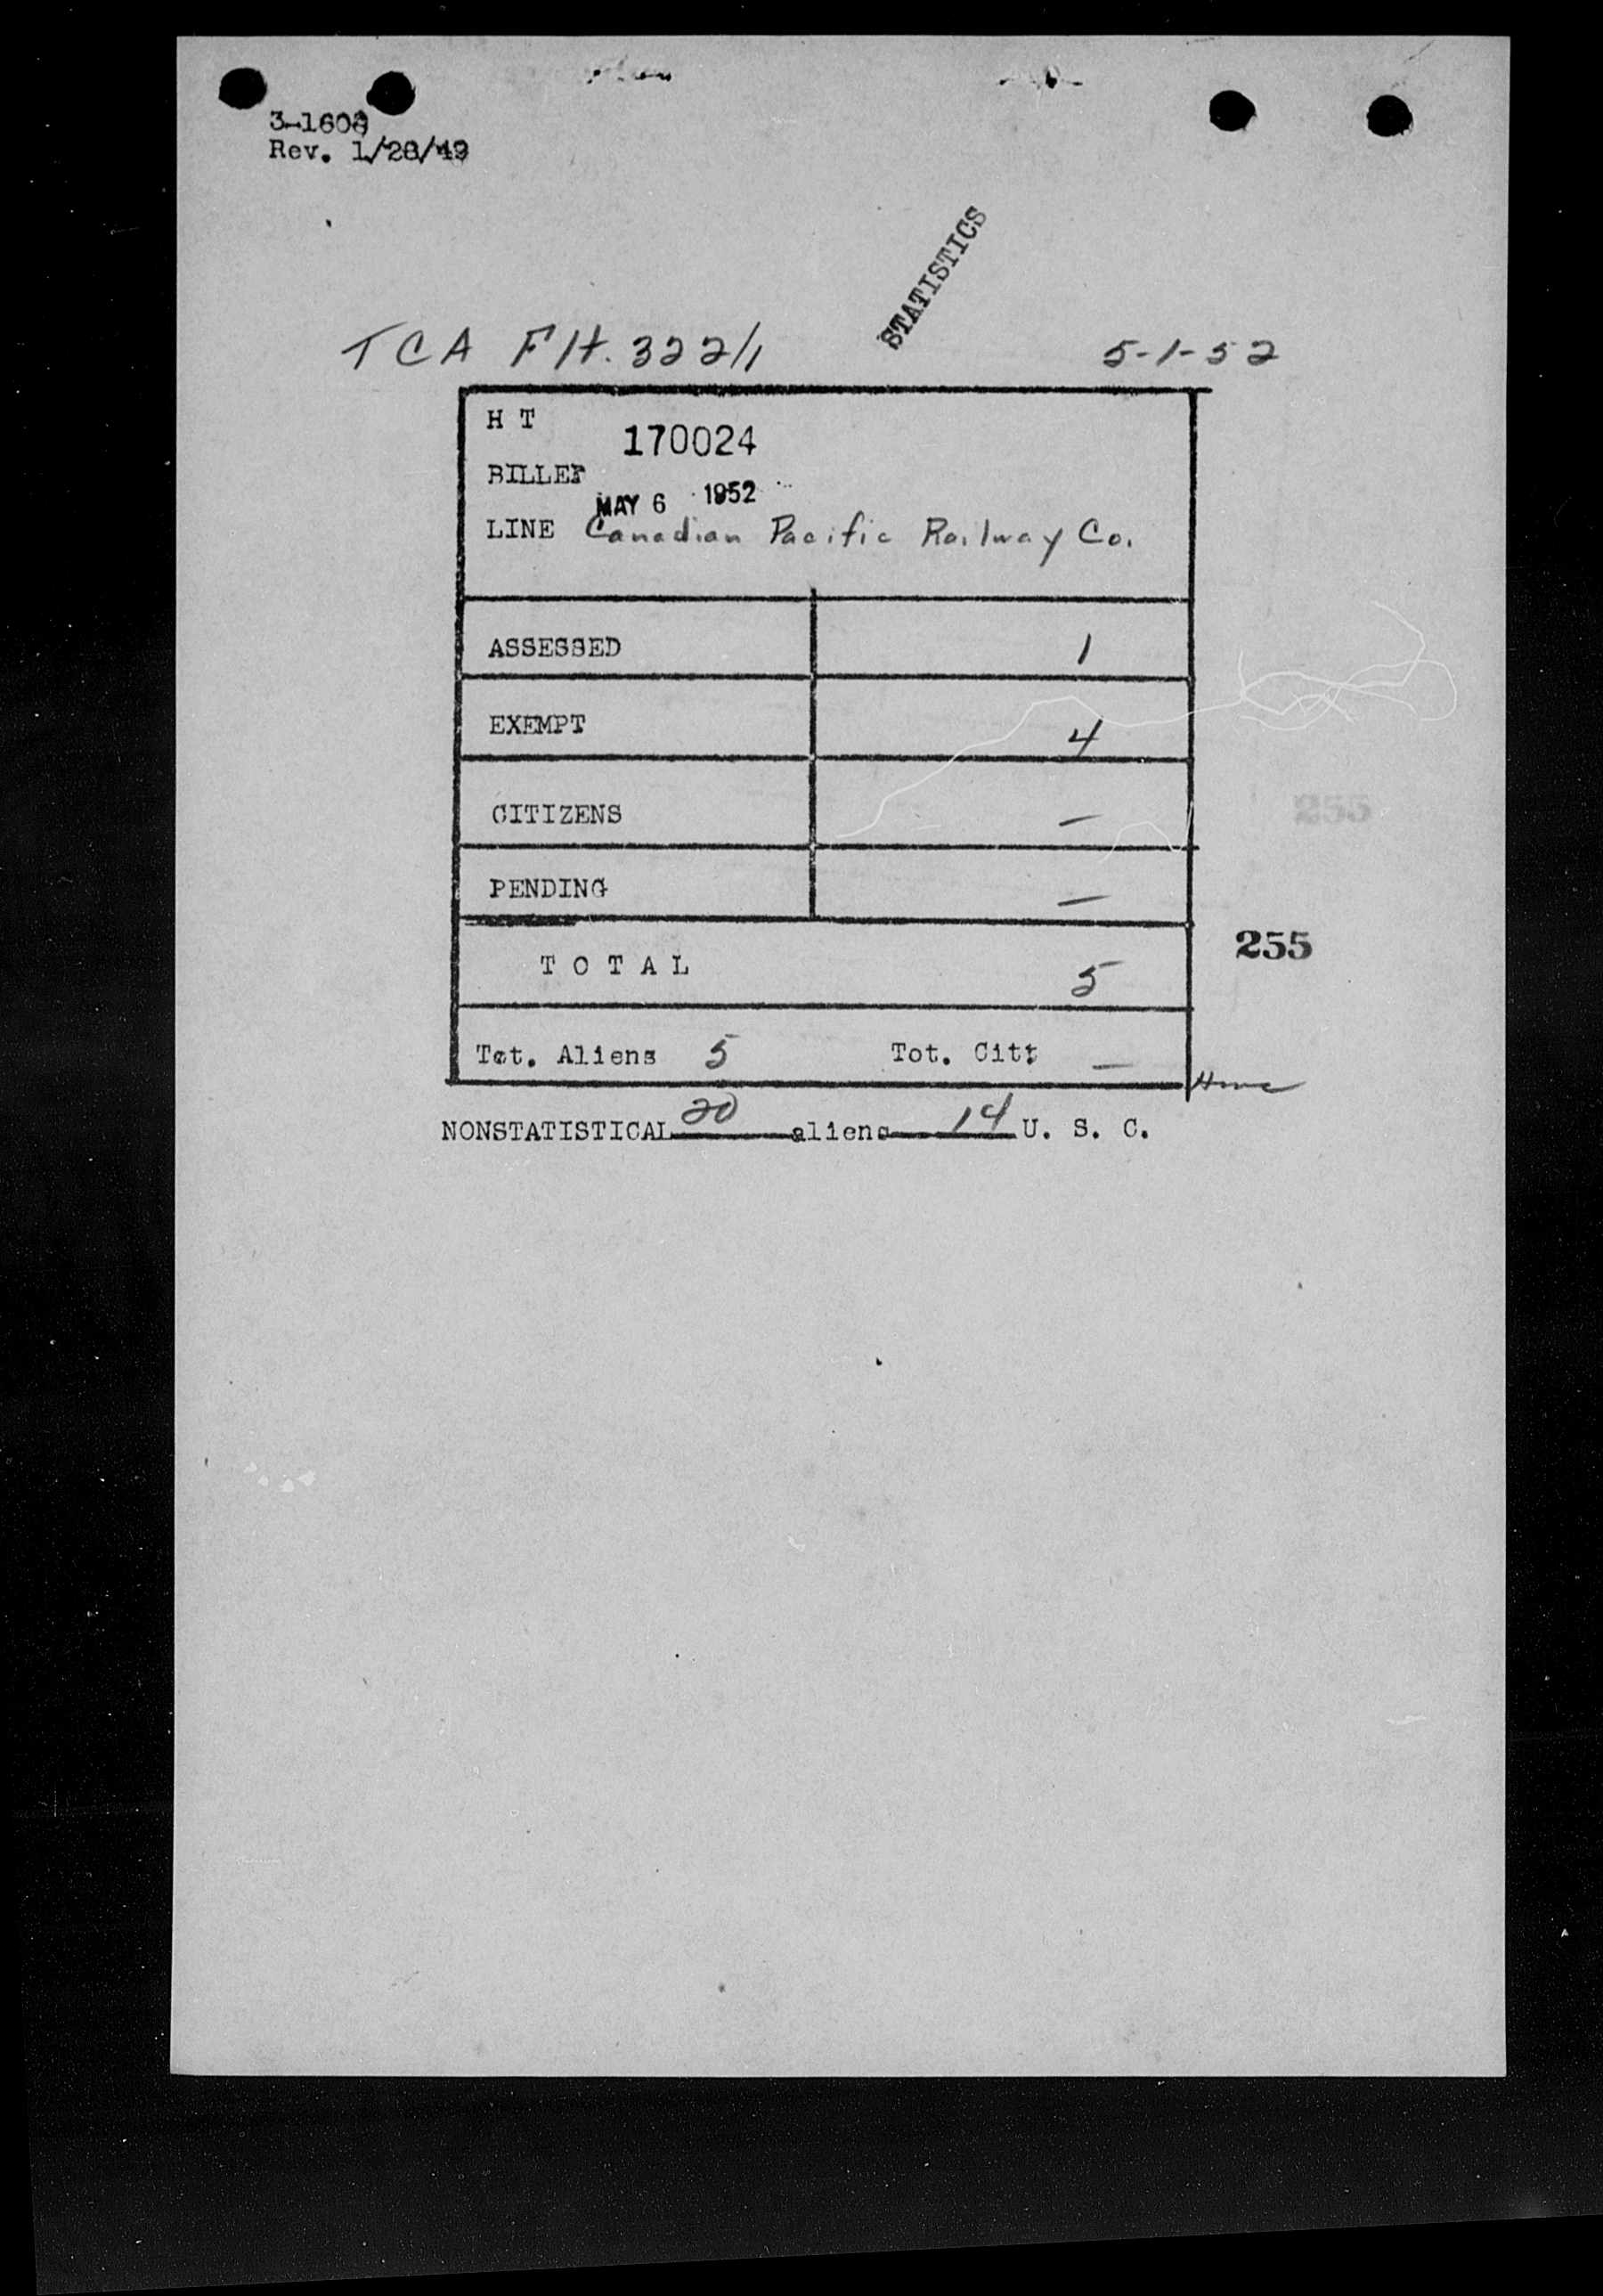 3-1608
Rev. 1/28/49
STATISTICS
TCA Flt. 322/1 5-1-52
H T 170024
BILLED MAY 6 1952
LINE Canadian Pacific Railway Co.
ASSESSED 1
EXEMPT 4
CITIZENS —
PENDING —
255
255
T O T A L 5
Tot. Aliens 5 Tot. Cit: —
NONSTATISTICAL 20 aliens 14 U. S. C.